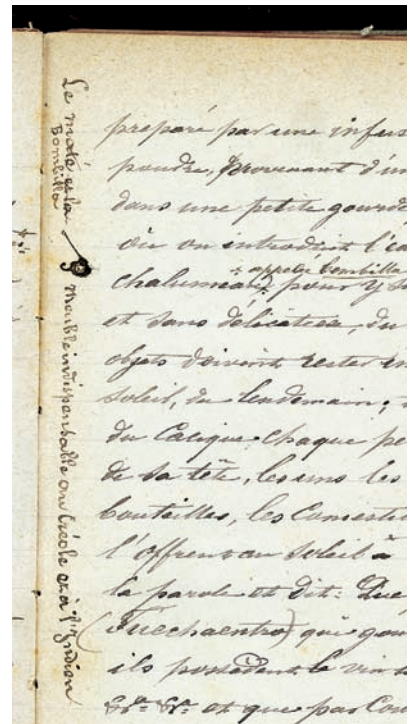 Le maté et la
Bombilla
Meuble indispensable au Créole et à l'Indien
preparé par une infus
poudre, provenant d'un
dans une petite gourde
où on introduit l'ea
appelé bombilla
chalumeau pour y
et sans délicatesse, du
objets doivent rester en
soleil, du lendemain;
du Cacique chaque pe
de sa tête, les uns les
bouteilles, les Comesti
l'offrent au soleil à
la parole et dit: Que
qui gou
ils possèdent le vin
et que par Cou